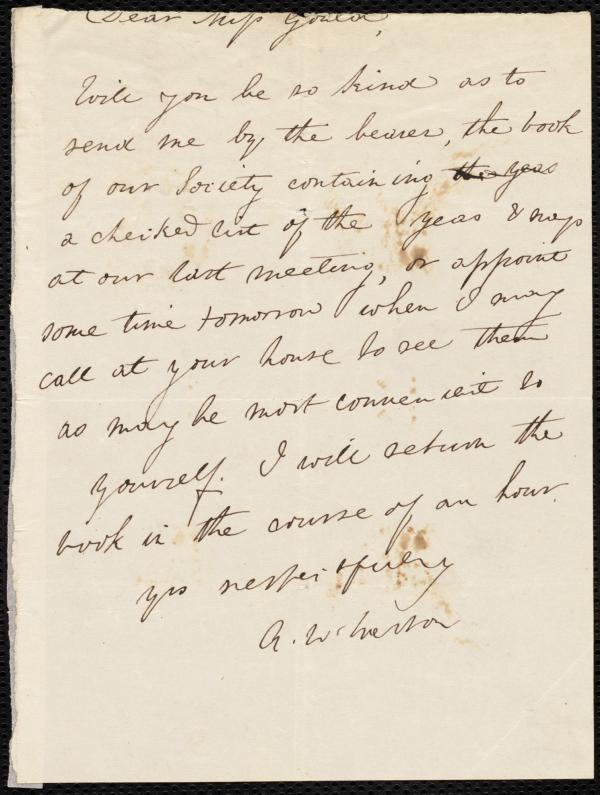 Dear Miss Gould,
Will you be so kind as to
send me by the bearer, the book
of our Society containing the yeas
a checked list of the yeas & nays
at our last meeting, or appoint
some time tomorrow when I may
call at your house to see them
as may be most convenient to
yourself. I will return the
book in the course of an hour.
yrs respectfully
A. W. Weston